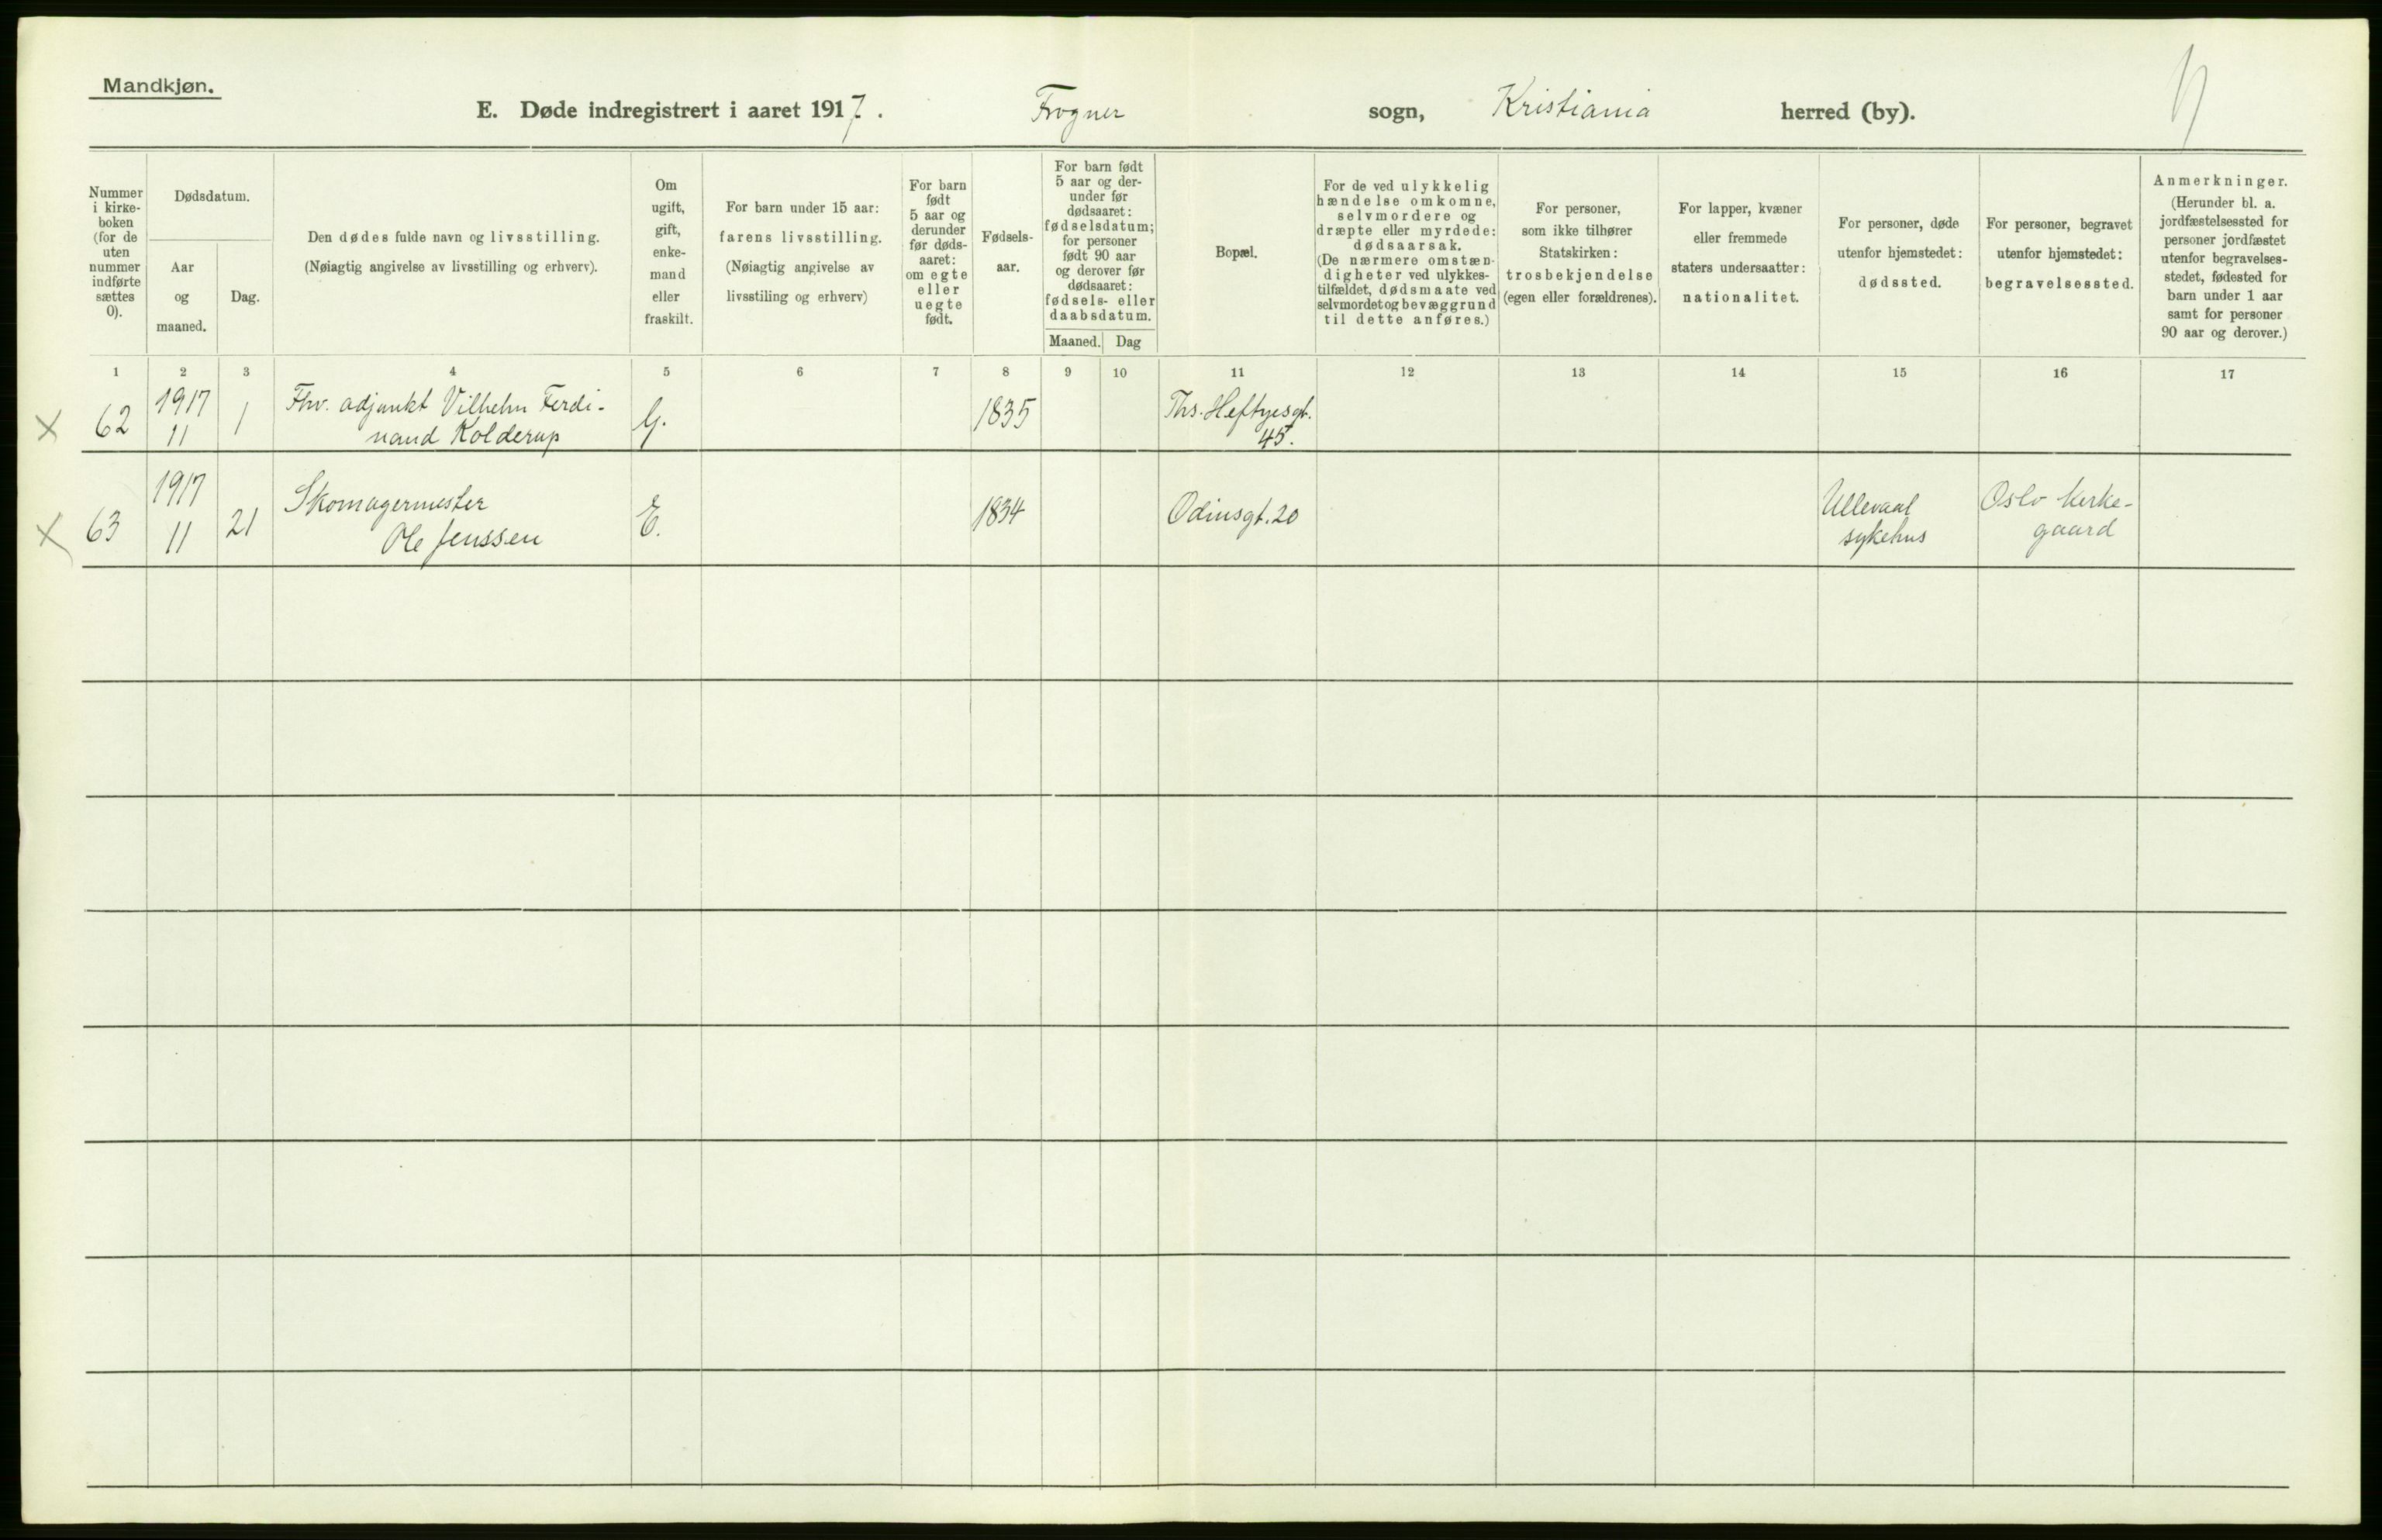 Mandkjøn.
E. Døde indregistrert i aaret 1917. Frogner sogn, Kristiania herred (by).
Nummer
i kirke-
boken
(for de
uten
nummer
indførte
sættes
0).
Dødsdatum.
Aar
og
maaned.
Dag.
Den dødes fulde navn og livsstilling.
(Nøiagtig angivelse av livsstilling og erhverv).
Om
ugift,
gift,
enke-
mand
eller
fraskilt.
For barn under 15 aar:
farens livsstilling.
(Nøiagtig angivelse av
livsstiling og erhverv)
For barn
født
5 aar og
derunder
før døds-
aaret:
om egte
eller
uegte
født.
Fødsels-
aar.
For barn født
5 aar og der-
under før
dødsaaret:
fødselsdatum;
for personer
født 90 aar
og derover før
dødsaaret:
fødsels- eller
daabsdatum.
Maaned. Dag
Bopæl.
For de ved ulykkelig
hændelse omkomne,
selvmordere og
dræpte eller myrdede:
dødsaarsak.
(De nærmere omstæn-
digheter ved ulykkes-
tilfældet, dødsmaate ved
selvmordet og bevæggrund
til dette anføres.)
For personer,
som ikke tilhører
Statskirken:
trosbekjendelse
(egen eller forældrenes).
For lapper, kvæner
eller fremmede
staters undersaatter:
nationalitet.
For personer, døde
utenfor hjemstedet:
dødssted.
For personer, begravet
utenfor hjemstedet:
begravelsessted.
Anmerkninger.
(Herunder bl. a.
jordfæstelsessted for
personer jordfæstet
utenfor begravelses-
stedet, fødested for
barn under 1 aar
samt for personer
90 aar og derover.)
1 2 3 4 5 6 7 8 9 10 11 12 13 14 15 16 17
x 62 1917 1 Fhv. adjunkt Vilhelm Ferdi- G. 1835 Ths. Heftyesgt.
11 nand Kolderup 45.
x 63 1917 21 Skomagermester E. 1834 Odinsgt. 20 Ullevaal Oslo kirke-
11 Ole Jenssen sykehus gaard